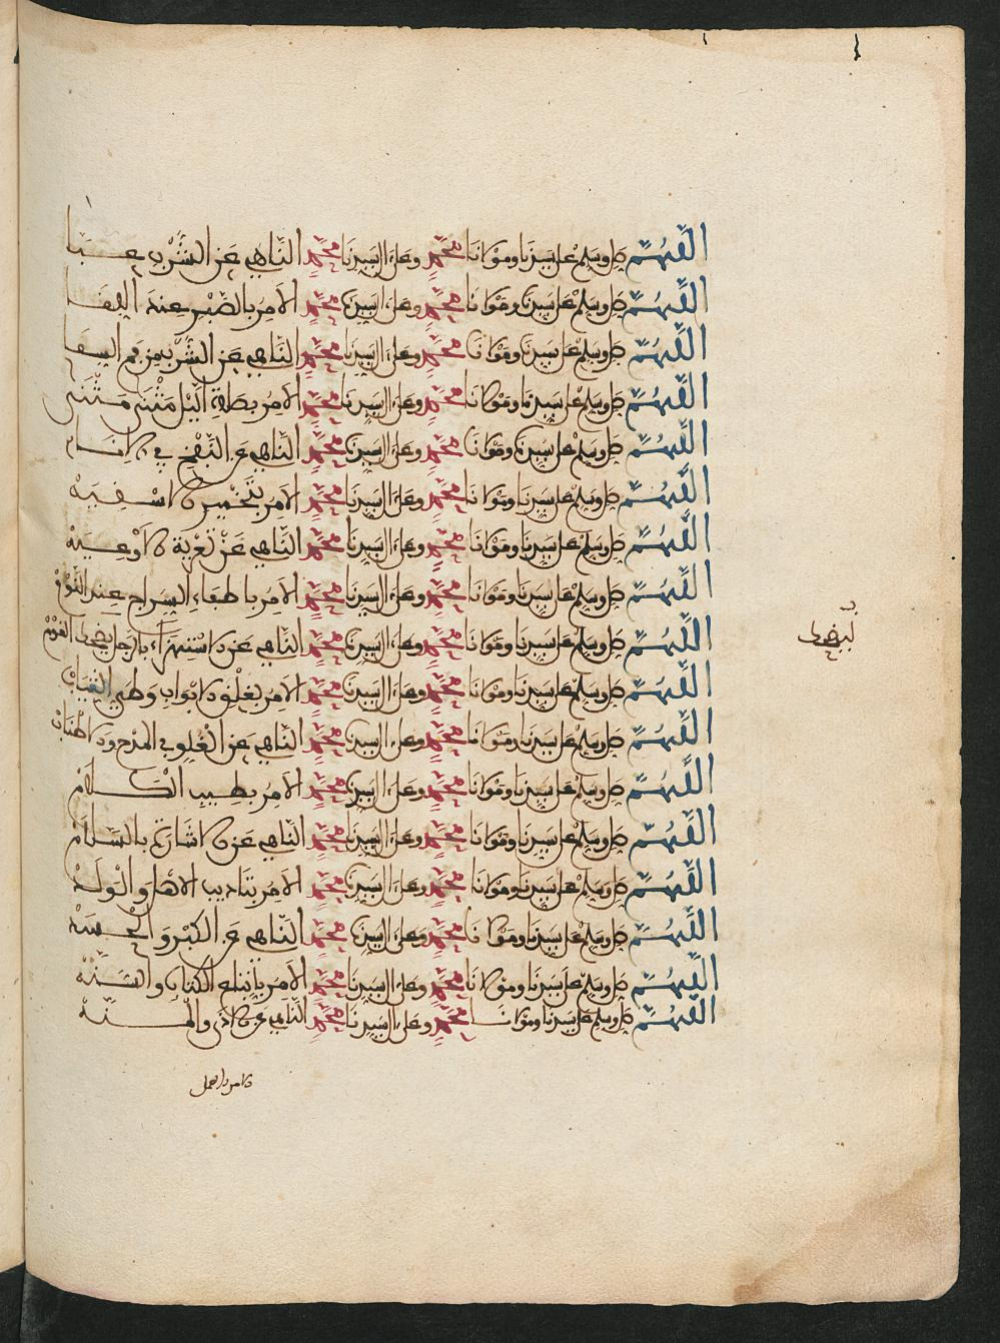 اللهم صل وسلم على سيدنا ومولانا محمد وعلى ءال سيدنا محمد الناهي عن الشرب عبا
اللهم صل وسلم على سيدنا ومولانا محمد وعلى ءال سيدنا محمد الامر بالصبر عند اللقا
اللهم صل وسلم على سيدنا ومولانا محمد وعلى ءال سيدنا محمد الناهي عن الشرب من فم السقا
اللهم صل وسلم على سيدنا ومولانا محمد وعلى ءال سيدنا محمد الامر بصلاة اليل مثنى مثنى
اللهم صل وسلم على سيدنا ومولانا محمد وعلى ءال سيدنا محمد الناهي عن النفخ في الانا
اللهم صل وسلم على سيدنا ومولانا محمد وعلى ءال سيدنا محمد الامر بتخمير الاسقية
اللهم صل وسلم على سيدنا ومولانا محمد وعلى ءال سيدنا محمد الناهي عن تعرية الاوعية
اللهم صل وسلم على سيدنا ومولانا محمد وعلى ءال سيدنا محمد الامر باطفاء السراج عند النوم
اللهم صل وسلم على سيدنا ومولانا محمد وعلى ءال سيدنا محمد الناهي عن الاستهزاء بالرجل القوم
اللهم صل وسلم على سيدنا ومولانا محمد وعلى ءال سيدنا محمد الامر بغلق الابواب وطي الثياب
اللهم صل وسلم على سيدنا ومولانا محمد وعلى ءال سيدنا محمد الناهي عن الغلو في المدح والاطناب
اللهم صل وسلم على سيدنا ومولانا محمد وعلى ءال سيدنا محمد الامر بطيب الكلام
اللهم صل وسلم على سيدنا ومولانا محمد وعلى ءال سيدنا محمد الناهي عن الاشارة بالسلام
اللهم صل وسلم على سيدنا ومولانا محمد وعلى ءال سيدنا محمد الامر بتاديب الاهل والولد
اللهم صل وسلم على سيدنا ومولانا محمد وعلى ءال سيدنا محمد الناهي عن الكبر والحسد
اللهم صل وسلم على سيدنا ومولانا محمد وعلى ءال سيدنا محمد الامر باتباع الكتاب والسنة
اللهم صل وسلم على سيدنا ومولانا محمد وعلى ءال سيدنا محمد الناهي عن الاذى والمنة